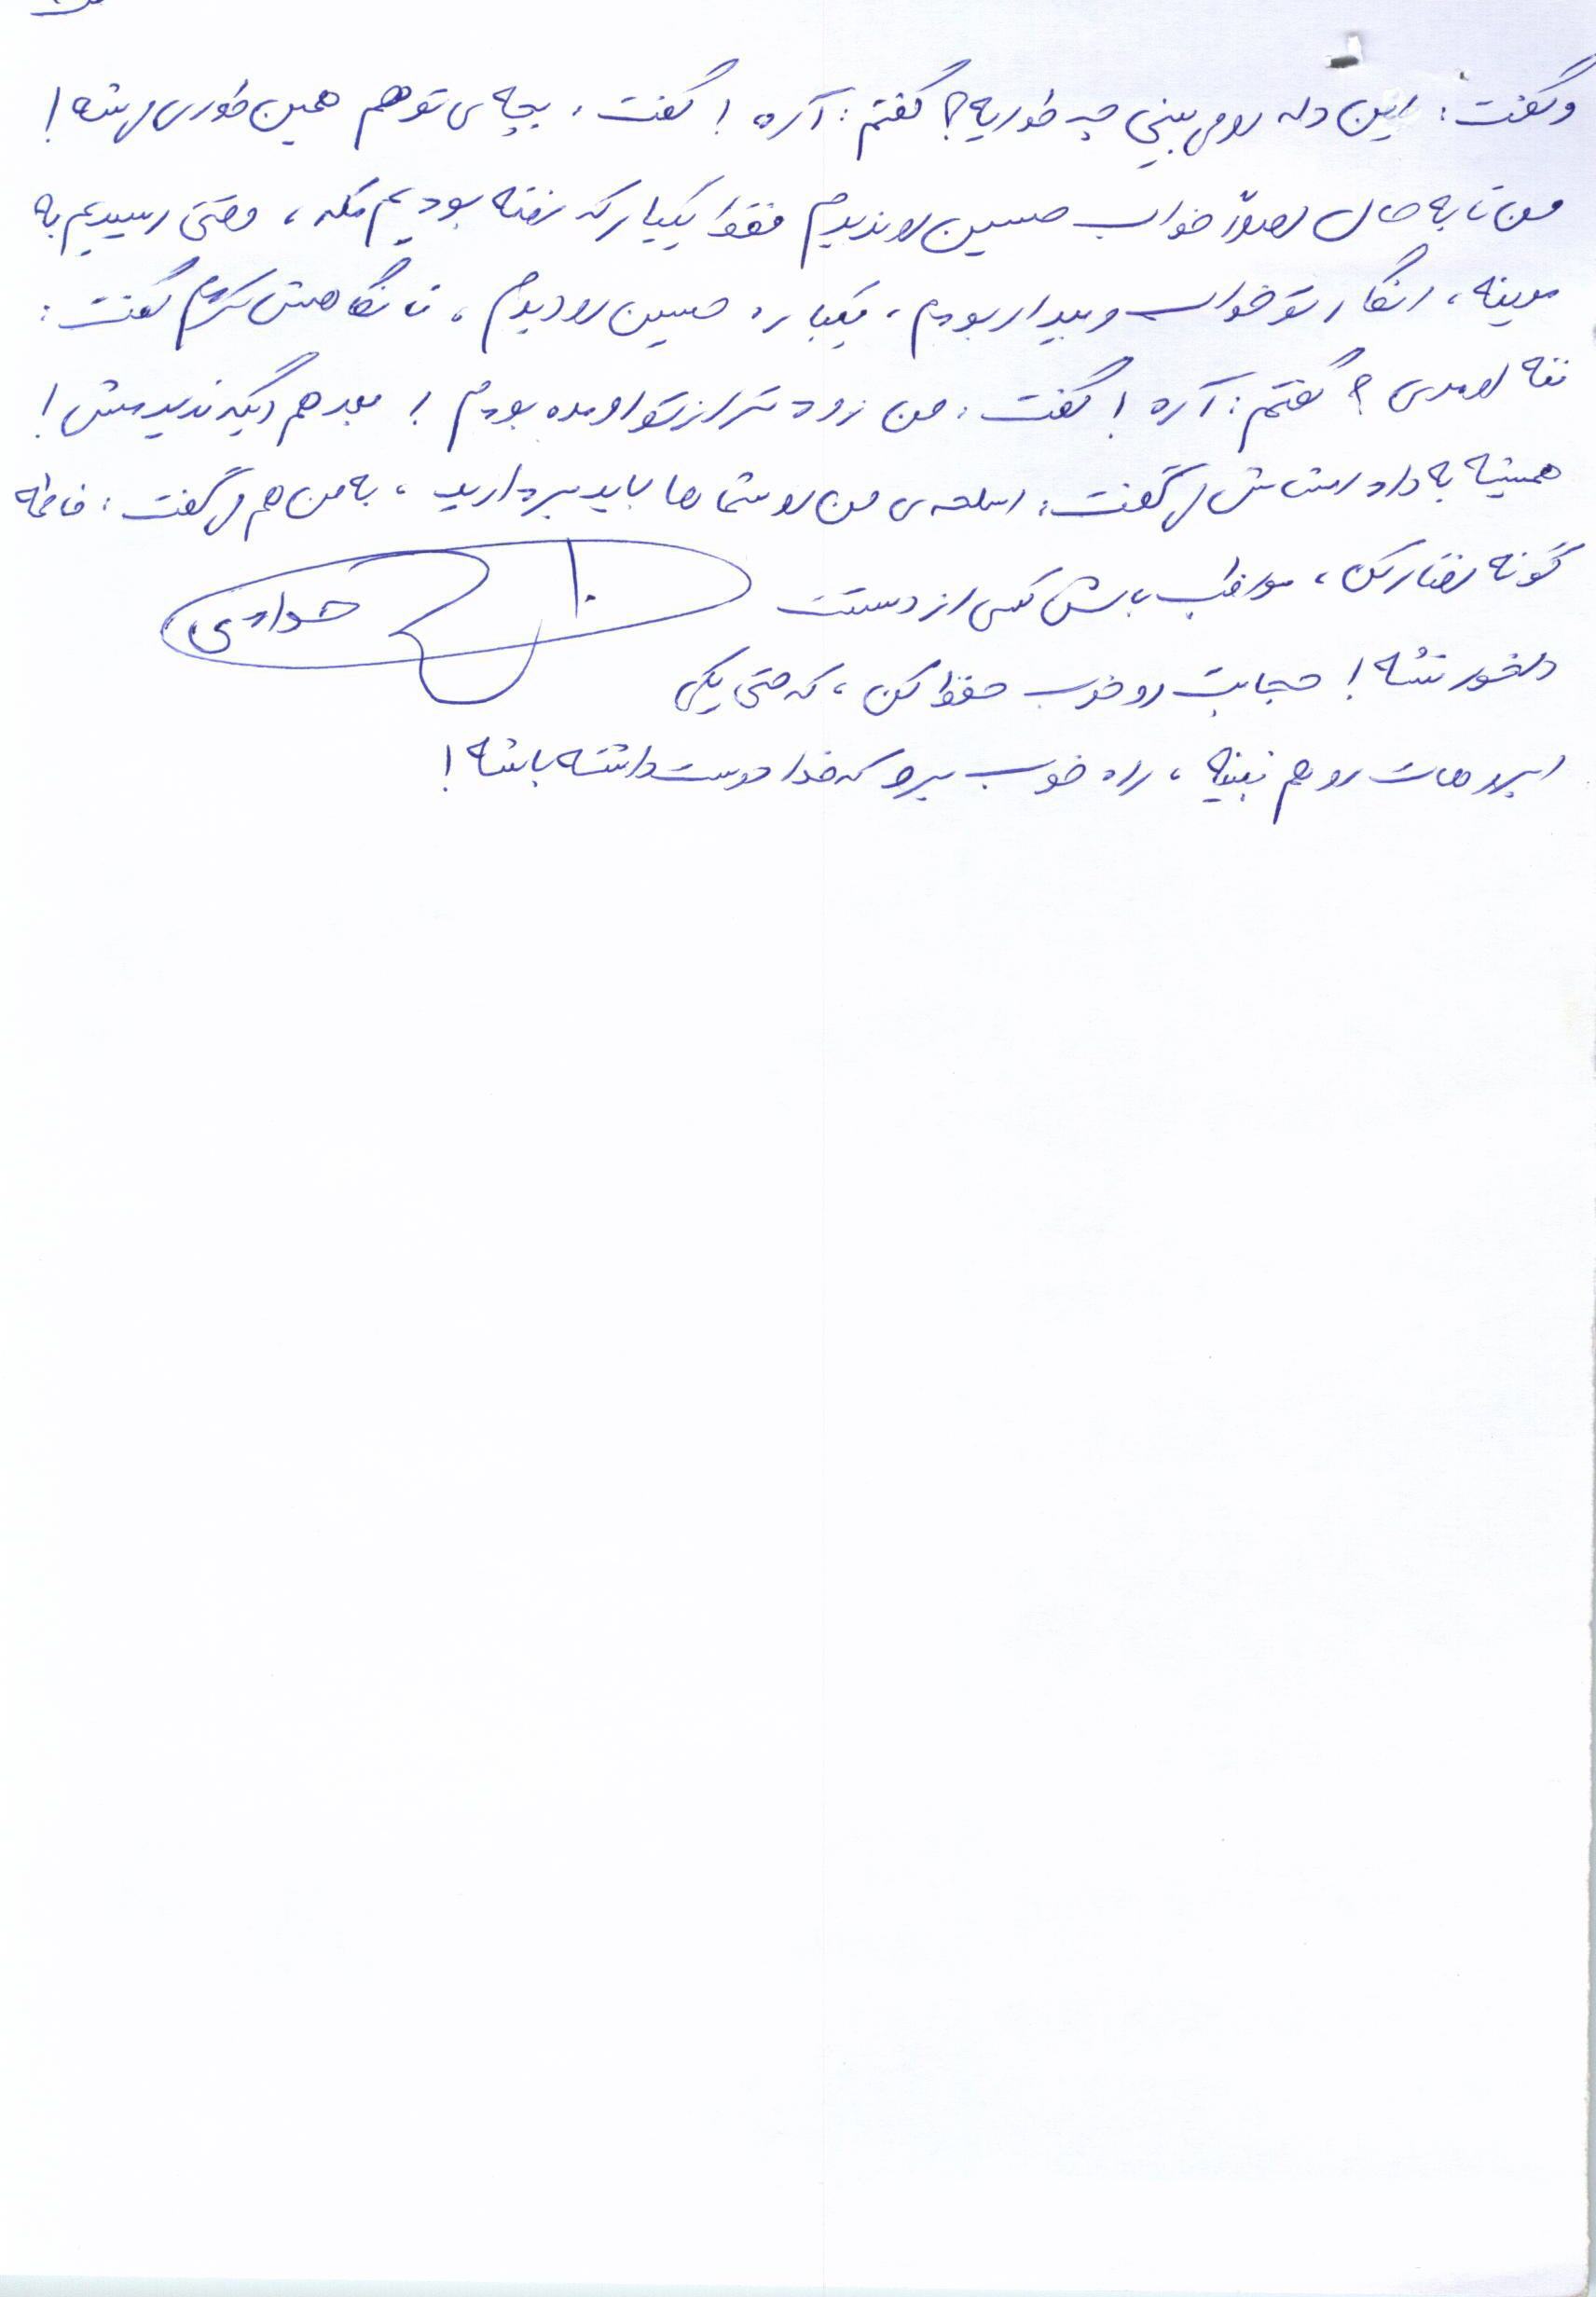 و گفت: این دله رو می بینی چه طوریه؟ گفتم: آره! گفت، بچه ی تو هم همین طوری میشه!
من تا به حال اصلاً خواب حسین رو ندیدم فقط یکبار که رفته بودیم مکه، وقتی رسیدیم به
مدینه، انگار تو خواب و بیدار بودم، یکباره حسین رو دیدم، تا نگاهش کردم گفت:
ننه اومدی؟ گفتم: آره! گفت: من زودتر از تو اومده بودم! بعد هم دیگه ندیدمش!
همیشه به داداشاش میگفت: اسلحه ی من رو شماها باید بردارید، به من هم میگفت: فاطمه
گونه رفتار کن، مواظب باش کسی از دستت
دلخور نشه! حجابت رو خوب حفظ کن، که حتی یکی
ابروهات رو هم نبینه، راه خوب برو که خدا دوست داشته باشه!